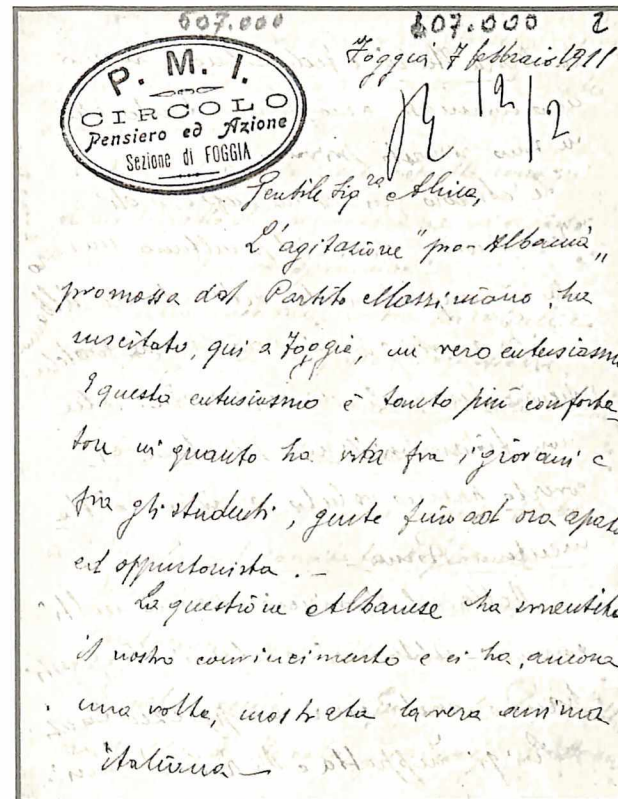 607.000
607.000 2
Foggia 7 febbraio 1911
P. M. I.
CIRCOLO
Pensiero ed Azione
Sezione di FOGGIA
12/2
Gentile Sig.ra Alina,
L'agitazione "pro-Albania„
promossa dal Partito Mazziniano, ha
suscitato, qui a Foggia, un vero entusiasmo
E questo entusiasmo è tanto più conforta-
tore in quanto ha vita fra i giovani e
fra gli studenti, gente fino ad ora apata
ed opportunista. -
La questione Albanese ha smentito
il nostro convincimento e ci ha, ancora
una volta, mostrata la vera anima
italiana -